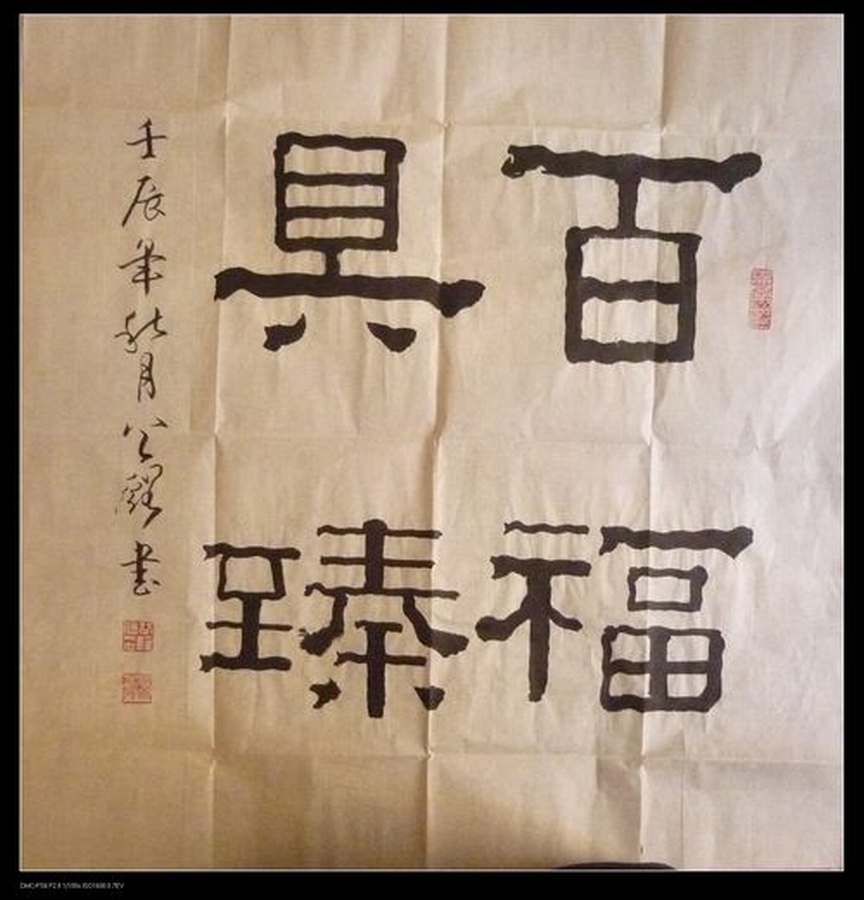 百福
具臻
壬辰年秋月公 书